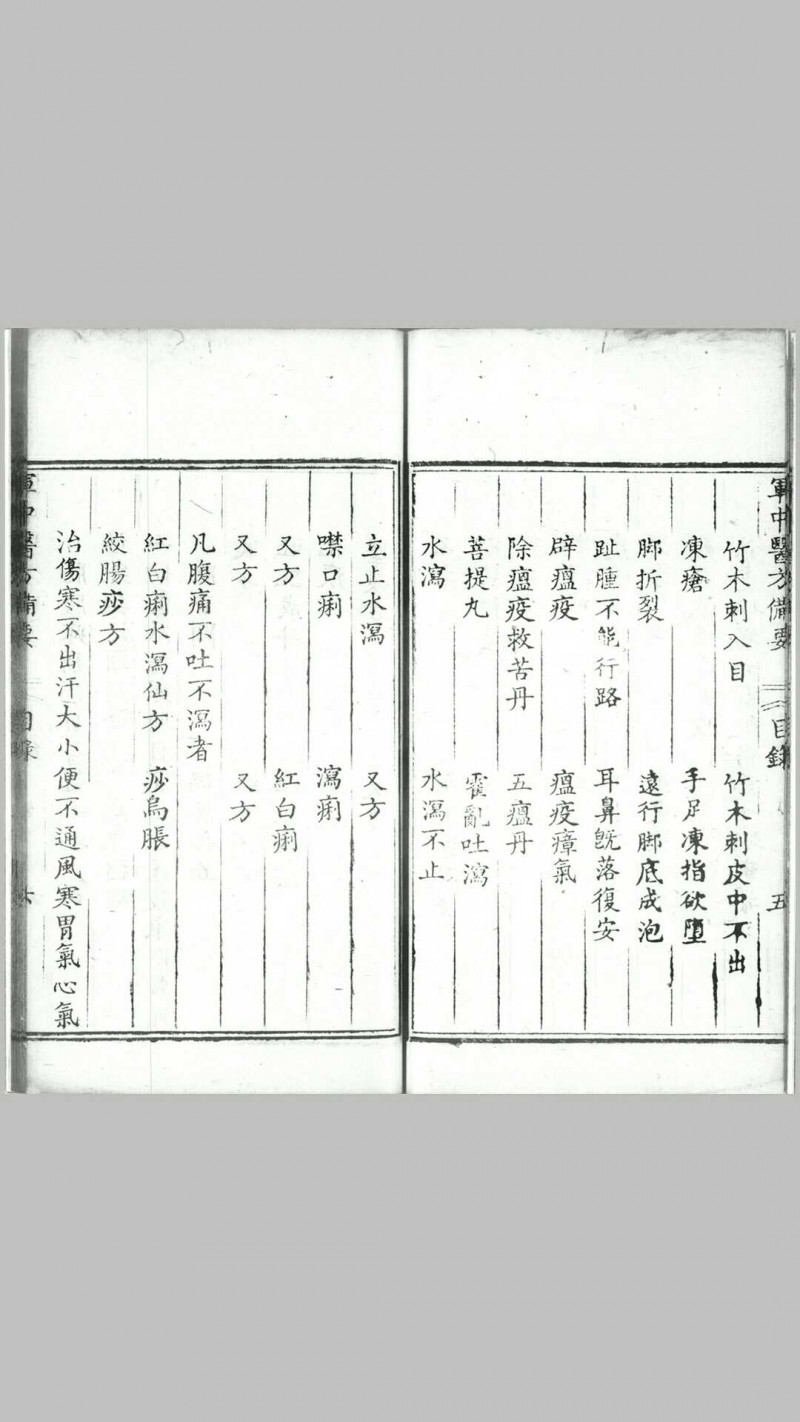 軍中醫方備要 目錄 五
竹木刺入目 竹木刺皮中不出
凍瘡 手足凍指欲墮
脚折裂 遠行脚底成泡
趾腫不能行路 耳鼻旣落復安
辟瘟疫 瘟疫瘴氣
除瘟疫救苦丹 五瘟丹
菩提丸 霍亂吐瀉
水瀉 水瀉不止
立止水瀉 又方
噤口痢 瀉痢
又方 紅白痢
又方 又方
凡腹痛不吐不瀉者
紅白痢水瀉仙方 痧烏脹
絞腸痧方
治傷寒不出汗大小便不通風寒胃氣心氣
軍中醫方備要 目錄 六